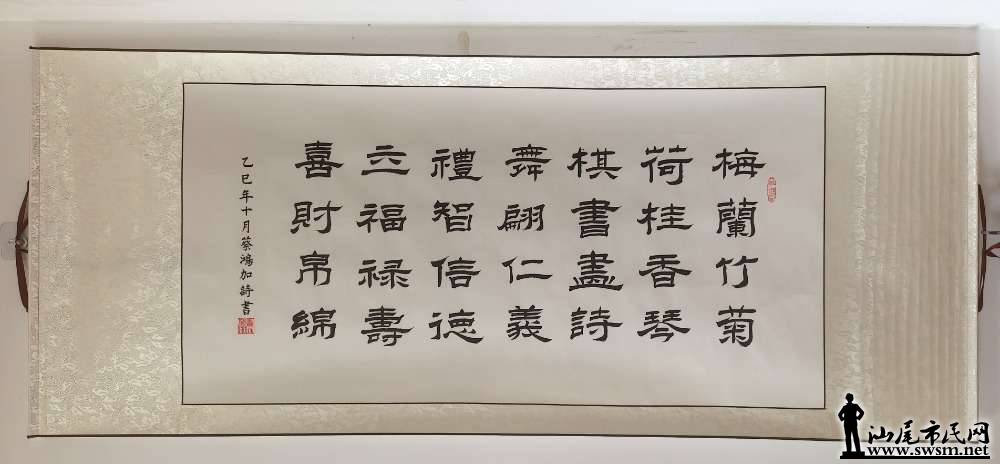 梅蘭竹菊
荷桂香琴
棋書畫詩
舞翩仁義
禮智信德
立福禄壽
喜財帛綿
乙巳年十月蔡鴻加詩書
汕尾市民网
www.swsm.net